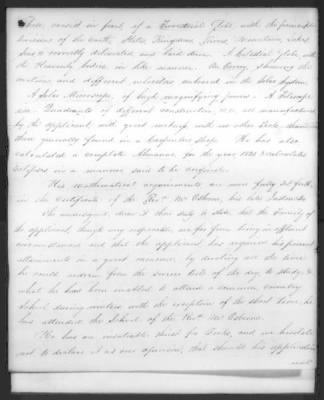 These consist in part, of a Terrestrial Globe, with the principal
divisions of the earth, States, Kingdoms, Rivers, Mountains, Lakes
Seas &c correctly delineated and laid down. A Celestial Globe, with
the Heavenly bodies, in like manner. An Orrery, shewing the
motions and different velocities ordained in the Solar System.
A Solar Microscope, of high magnifying powers. A Telescope
Quadrants of different construction, &c, all manufactured
by the applicant, with great nicety, with no other Tools, than
those generally found in a Carpenters Shop. He has also
calculated a complete Almanac, for the year 1838 & calculates
Eclipses in a manner said to be original.
His Mathematical acquirements are more fully set forth,
in the Certificate of the Revd. Mr Osborne, his late Instructor
The undersigned, deem it their duty to state that the Family of
the applicant, though very respectable, are far from being in affluent
circumstances and that the applicant has acquired his present
attainments in a great measure, by devoting all the time
he could redeem from the severe toils of the day, to study &
what he had been enabled to attend a common, country
School during winters with the exception of the short time, he
has attended the School of the Revd. Mr Osborne.
He has an insatiable thirst for Books, and we hesitate
not to declare it as our opinion, that should his application